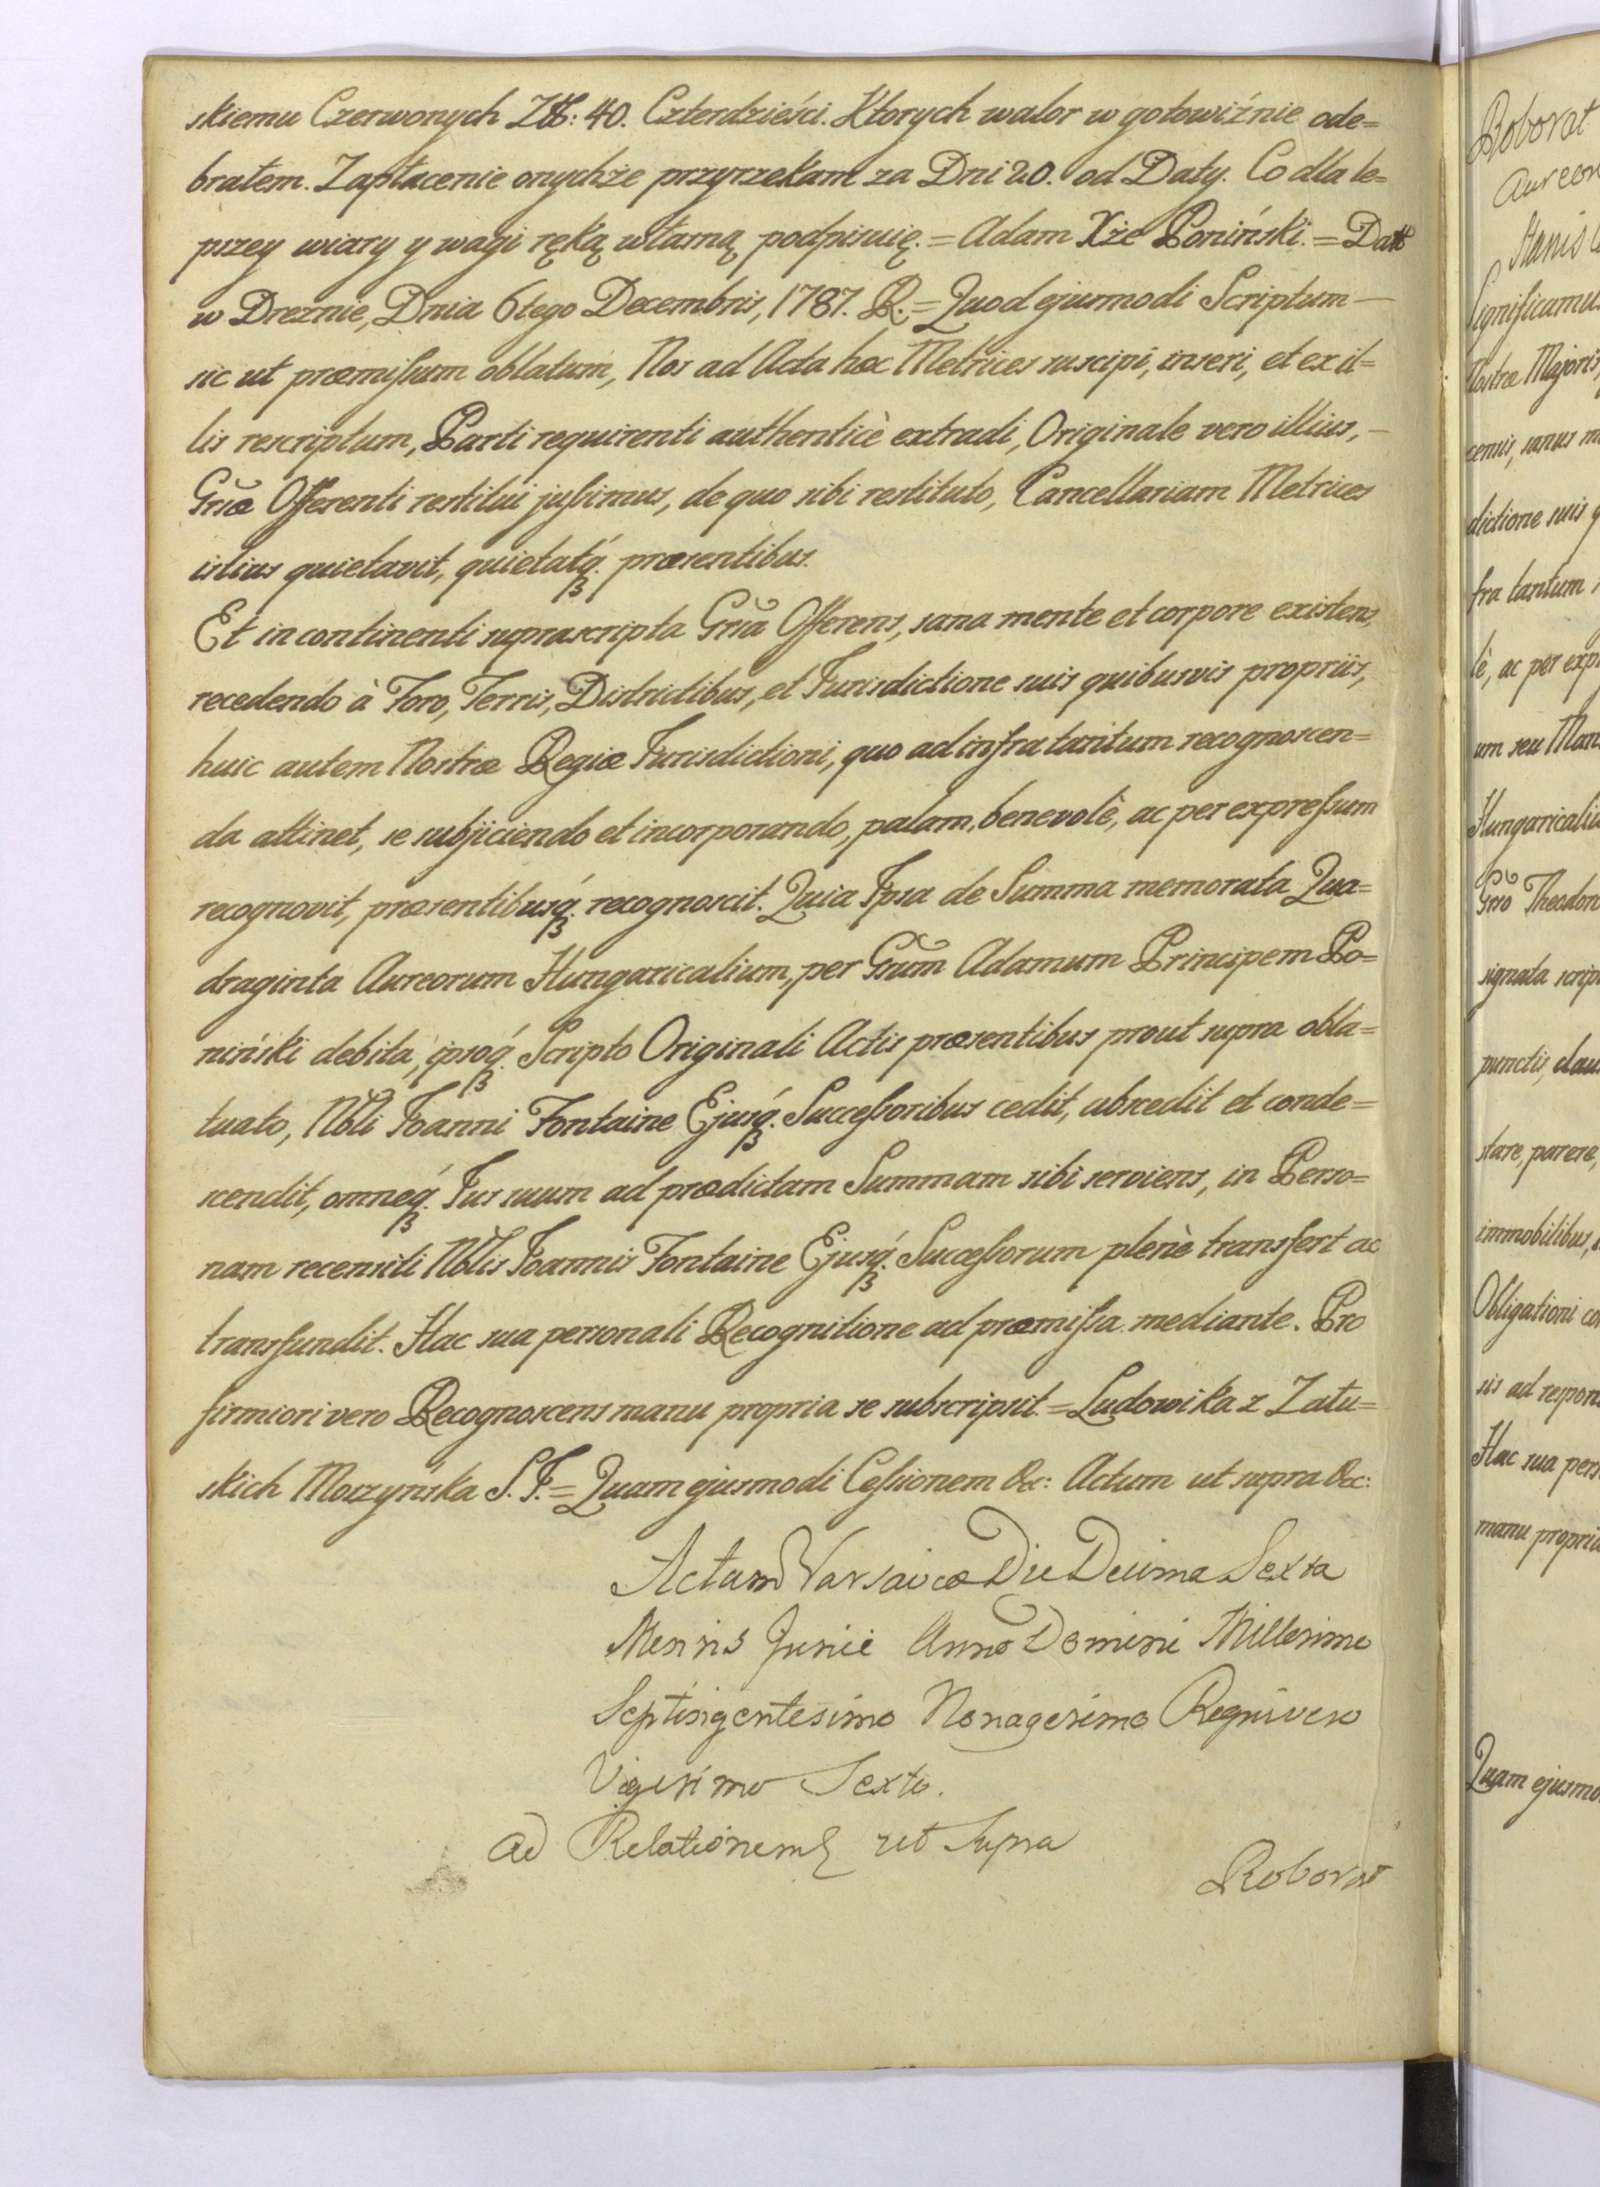 skiemu Czerwonych Złł: 40. Czterdzieści. Ktorych walor w gotowiźnie ode=
brałem. Zapłacenie onychże przyrzekam za Dni 20. od Daty. Co dla le=
pszey wiary y wagi ręką własną podpisuię. = Adam Xże Poniński. = Datt
w Dreznie, Dnia 6tego Decembris, 1787. R. = Quod ejusmodi Scriptum —
sic ut præmissum oblatum, Nos ad Acta hæc Metrices suscipi, inseri, et ex il=
lis rescriptum, Parti requirenti authenticè extradi, Originale vero illius, —
Gnsæ Offerenti restitui jussimus, de quo sibi restituto, Cancellariam Metrices
istius quietavit, quietatq́. præsentibus.
Et in continenti suprascripta Gnsa Offerens, sana mente et corpore existens,
recedendo à Foro, Terris, Districtibus, et Jurisdictione suis quibusvis propriis,
huic autem Nostræ Regiæ Jurisdictioni, quo ad infra tantum recognoscen=
da attinet, se subjiciendo et incorporando, palam, benevolè, ac per expressum
recognovit, præsentibusq́. recognoscit. Quia Ipsa de Summa memorata Qua=
draginta Aureorum Hungaricalium, per Gnsum Adamum Principem Po=
niński debita, ipsoq́. Scripto Originali Actis præsentibus prout supra obla=
tuato, Nbli Joanni Fontaine Ejusq́. Successoribus cedit, abscedit et conde=
scendit, omneq́. Jus suum ad prædictam Summam sibi serviens, in Perso=
nam recensiti Nblis Joannis Fontaine Ejusq́. Successorum plenè transfert ac
transfundit. Hac sua personali Recognitione ad præmissa mediante. Pro
firmiori vero Recognoscens manu propria se subscripsit. = Ludowika z Zału=
skich Moszyńska S. J. = Quam ejusmodi Cessionem &c: Actum ut supra &c:
Actum Varsaviæ Die Decima Sexta
Mensis Junii Anno Domini Millesimo
Septingentesimo Nonagesimo Regni vero
Vigesimo Sexto.
Ad Relationem ut Supra
Roborat
Roborat
Aureor
Stanis
Significamus
Nostræ Majoris,
cemis, sanus m
dictione suis q
fra tantum
lè, ac per exp
um seu Man
Hungaricaliu
Gnso Theodor
signata scrip
punctis, clau
stare, parere,
immobilibus,
Obligationi co
sis ad respon
Hac sua pers
manu propria
Quam ejusmo